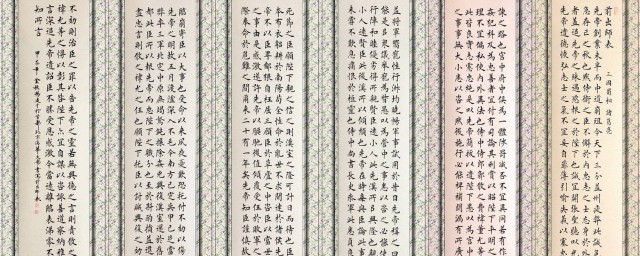 前出師表
三國蜀相 諸葛亮
先帝創業未半而中道崩殂今天下三分益州疲弊此誠危
急存亡之秋也然侍衛之臣不懈於內忠志之士忘身於外者蓋追
先帝之殊遇欲報之於陛下也誠宜開張聖聽以光
先帝遺德恢弘志士之氣不宜妄自菲薄引喻失義以塞忠
諫之路也宮中府中俱為一體陟罰臧否不宜異同若有作
姦犯科及為忠善者宜付有司論其刑賞以昭陛下平明之
理不宜偏私使內外異法也侍中侍郎郭攸之費禕董允等
此皆良實志慮忠純是以先帝簡拔以遺陛下愚以為宮中
之事事無大小悉以咨之然後施行必能裨補闕漏有所廣
益將軍向寵性行淑均曉暢軍事試用於昔日先帝稱之曰
能是以眾議舉寵為督愚以為營中之事悉以咨之必能使
行陣和睦優劣得所親賢臣遠小人此先漢所以興隆也親
小人遠賢臣此後漢所以傾頹也先帝在時每與臣論此事
未嘗不歎息痛恨於桓靈也侍中尚書長史參軍此悉貞良
死節之臣願陛下親之信之則漢室之隆可計日而待也臣
本布衣躬耕於南陽苟全性命於亂世不求聞達於諸侯先
帝不以臣卑鄙猥自枉屈三顧臣於草廬之中咨臣以當世
之事由是感激遂許先帝以驅馳後值傾覆受任於敗軍之
際奉命於危難之間爾來二十有一年矣先帝知臣謹慎故
臨崩寄臣以大事也受命以來夙夜憂歎恐託付不效以傷
先帝之明故五月渡瀘深入不毛今南方已定兵甲已足當
獎率三軍北定中原庶竭駑鈍攘除姦凶興復漢室還於舊
都此臣所以報先帝而忠陛下之職分也至於斟酌損益進
盡忠言則攸之禕允之任也願陛下託臣以討賊興復之效
不效則治臣之罪以告先帝之靈若無興德之言則責攸之
禕允等之咎以彰其咎陛下亦宜自謀以咨諏善道察納雅
言深追先帝遺詔臣不勝受恩感激今當遠離臨表涕零不
知所言